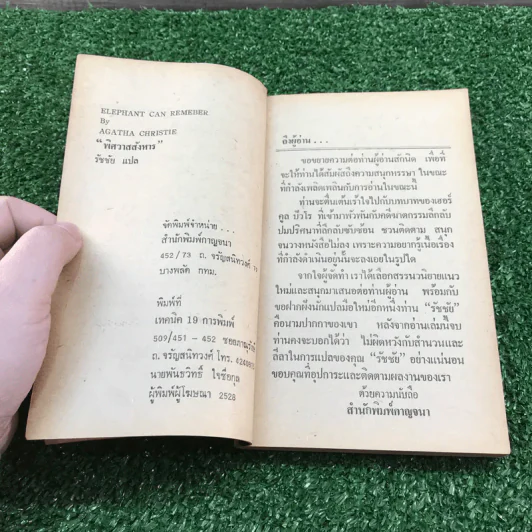 ELEPHANT CAN REMEBER
By
AGATHA CHRISTIE
"พิศวาสสังหาร"
รัชชัย แปล
จัดพิมพ์จำหน่าย . . .
สำนักพิมพ์กาญจนา
452/73 ถ. จรัญสนิทวงศ์ 79
บางพลัด กทม.
พิมพ์ที่
เทคนิค 19 การพิมพ์
509/451 - 452 ซอย
ถ. จรัญสนิทวงศ์ โทร.
นายพันธวิทธิ์ ใจซื่อกุล
ผู้พิมพ์ผู้โฆษณา 2528
ถึงผู้อ่าน . . .
ขอขยายความต่อท่านผู้อ่านสักนิด เพื่อที่
จะให้ท่านได้สัมผัสถึงความสนุกหรรษา ในขณะ
ที่กำลังเพลิดเพลินกับการอ่านในขณะนี้
ท่านจะตื่นเต้นเร้าใจไปกับบทบาทของเฮอร์
คูล ปัวโร ที่เข้ามาพัวพันกับคดีฆาตกรรมลึกลับ
ปมปริศนาที่ลึกลับซับซ้อน ชวนติดตาม สนุก
จนวางหนังสือไม่ลง เพราะความอยากรู้เนื้อเรื่อง
ที่กำลังดำเนินอยู่นั้นจะลงเอยในรูปใด
จากใจผู้จัดทำ เราได้เลือกสรรนวนิยายแนว
ใหม่และสนุกมาเสนอต่อท่านผู้อ่าน พร้อมกับ
ขอฝากฝังนักแปลมือใหม่อีกหนึ่งท่าน "รัชชัย"
คือนามปากกาของเขา หลังจากอ่านเล่มนี้จบ
ท่านคงจะบอกได้ว่า ไม่ผิดหวังกับสำนวนและ
ลีลาในการแปลของคุณ "รัชชัย" อย่างแน่นอน
ขอบคุณที่อุปการะและติดตามผลงานของเรา
ด้วยความนับถือ
สำนักพิมพ์กาญจนา